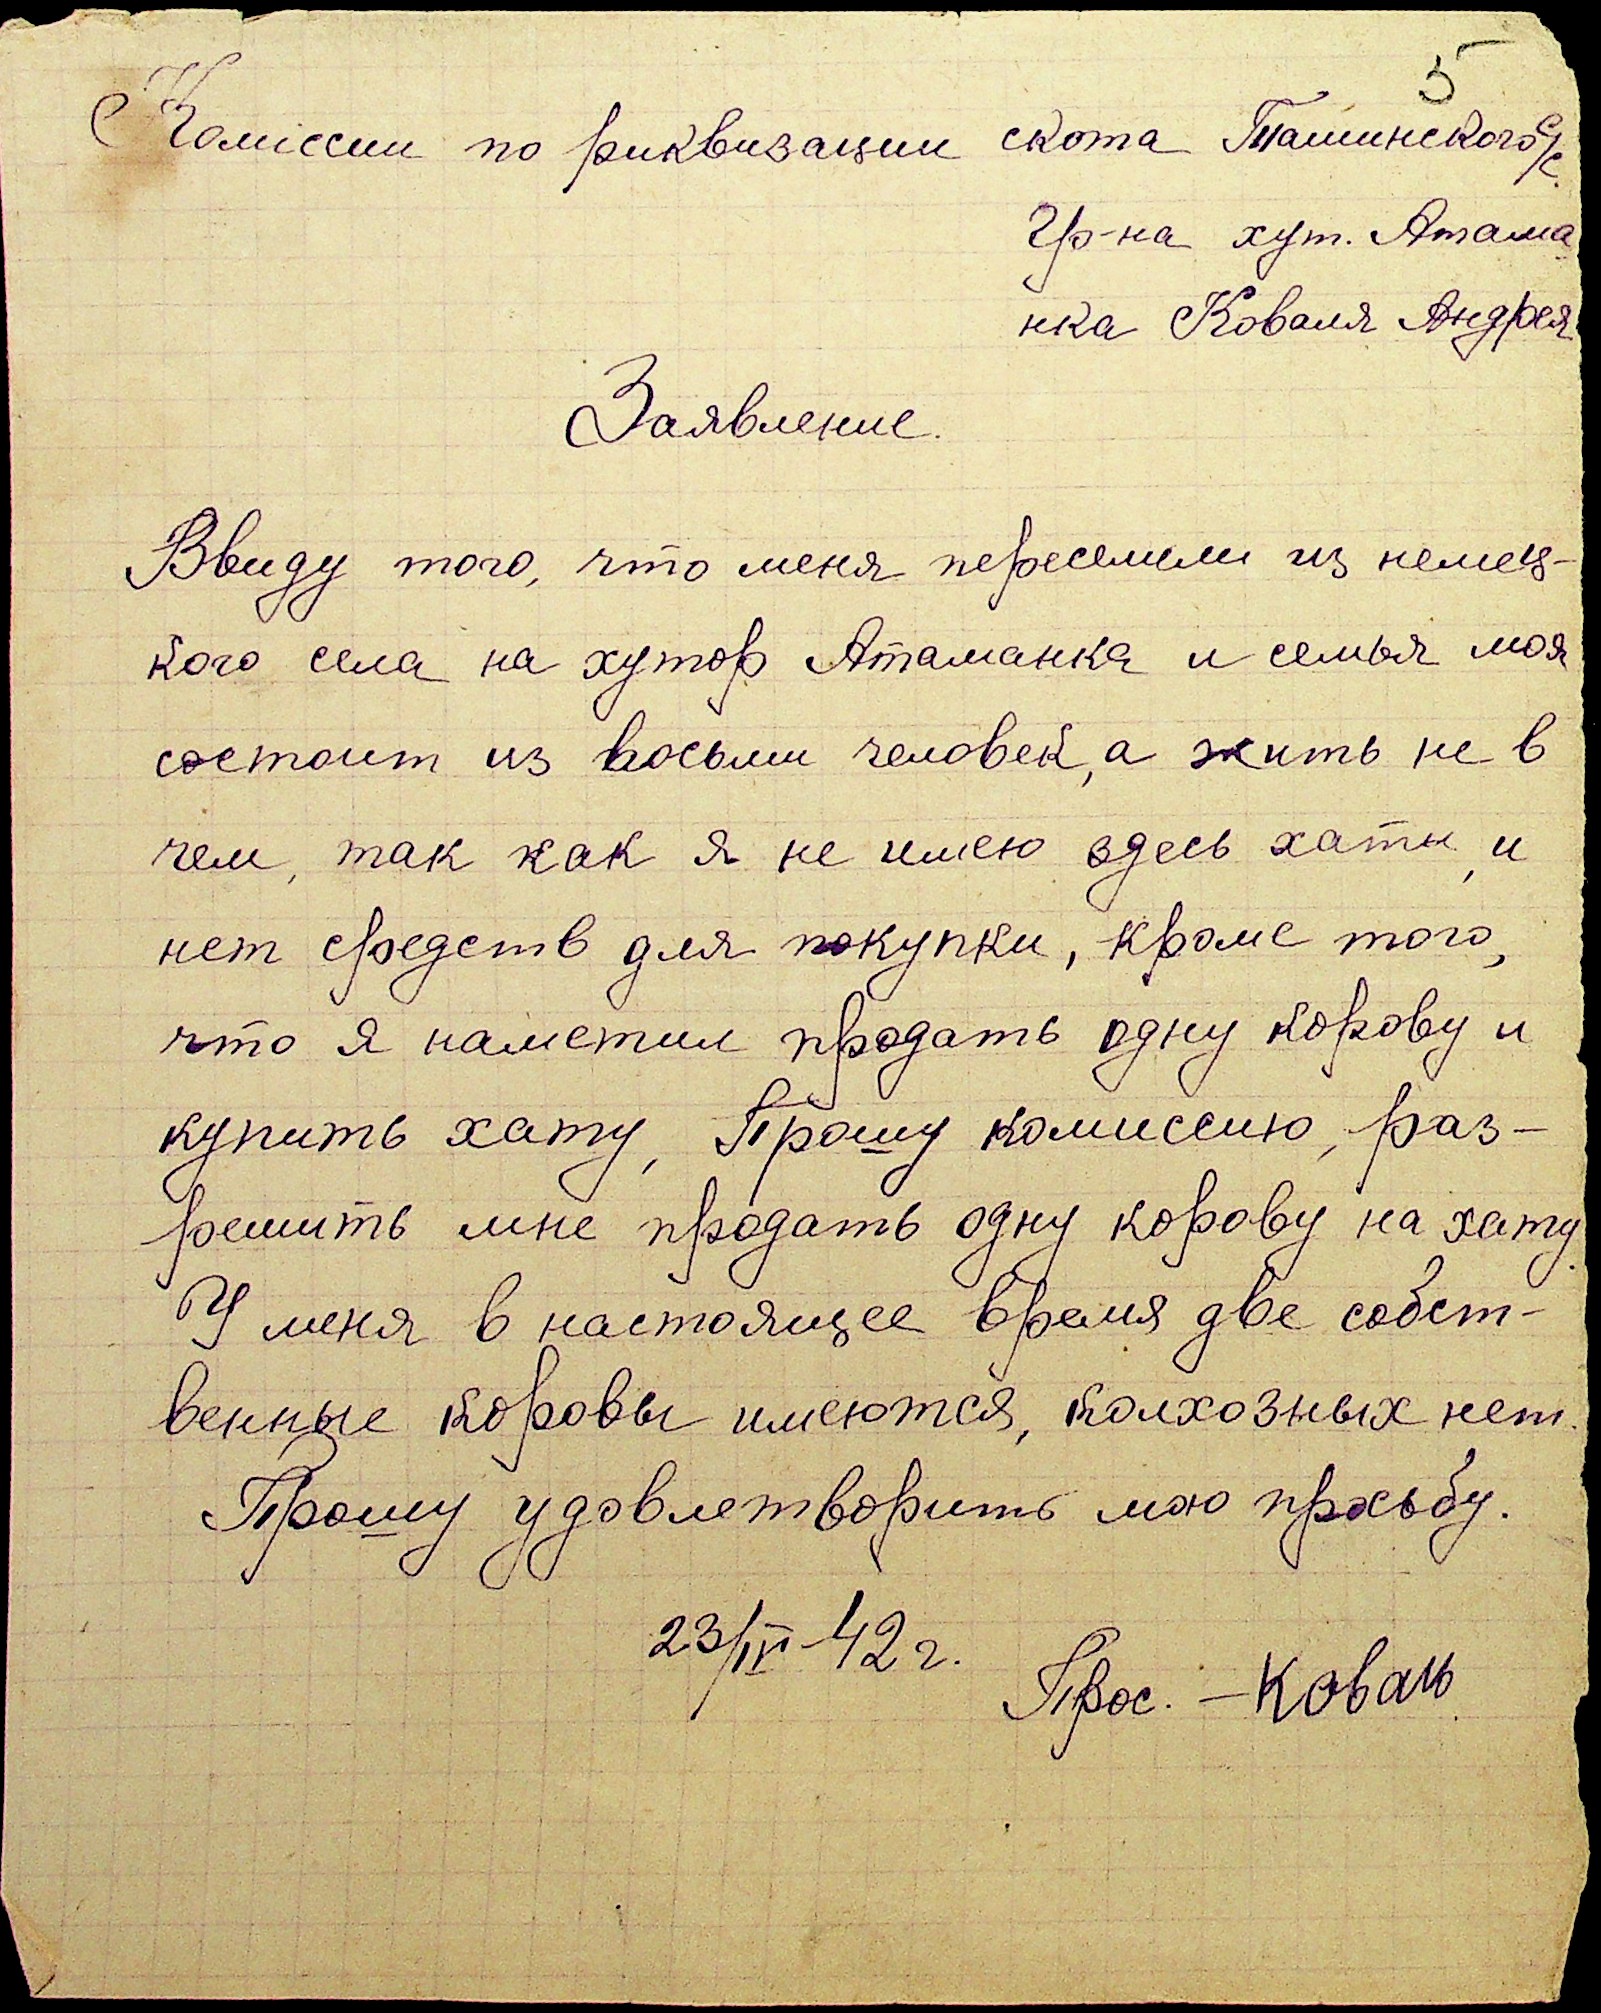 5
Коміссии по риквизации скота Ташинского с/с.
Гр-на хут. Атама
нка Коваля Андрея
Заявление.
Ввиду того, что меня переселили из немец-
кого села на хутор Атаманка и семья моя
состоит из восьми человек, а жить не в
чем, так как я не имею здесь хаты, и
нет средств для покупки, кроме того,
что я наметил продать одну корову и
купить хату, Прошу комиссию, раз-
решить мне продать одну корову на хату.
У меня в настоящее время две собст-
венные коровы имеются, колхозных нет.
Прошу удовлетворить мою просьбу.
23/IV-42 г.
Прос. – Коваль